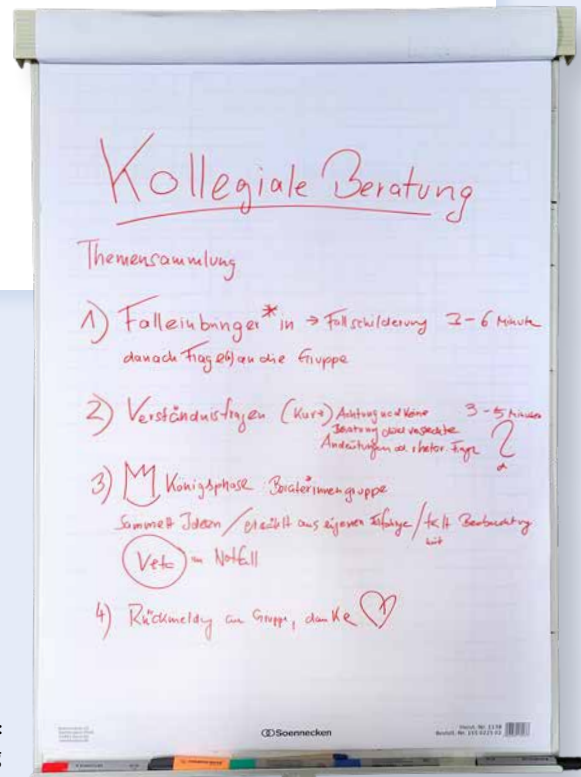 Kollegiale Beratung
Themensammlung
1) Falleinbringer*in → Fallschilderung 3-6 Minute
danach Frage(n) an die Gruppe
2) Verständnisfragen (kurz) Achtung noch keine 3-5 Minuten
Beratung durch versteckte
Andeutungen od. rhetor. Frage ?
3) Königsphase Berater*innengruppe
Sammelt Ideen / erzählt aus eigener / teilt Beobachtung
mit
Veto = Notfall
4) Rückmeldg an Gruppe, danke
Soennecken